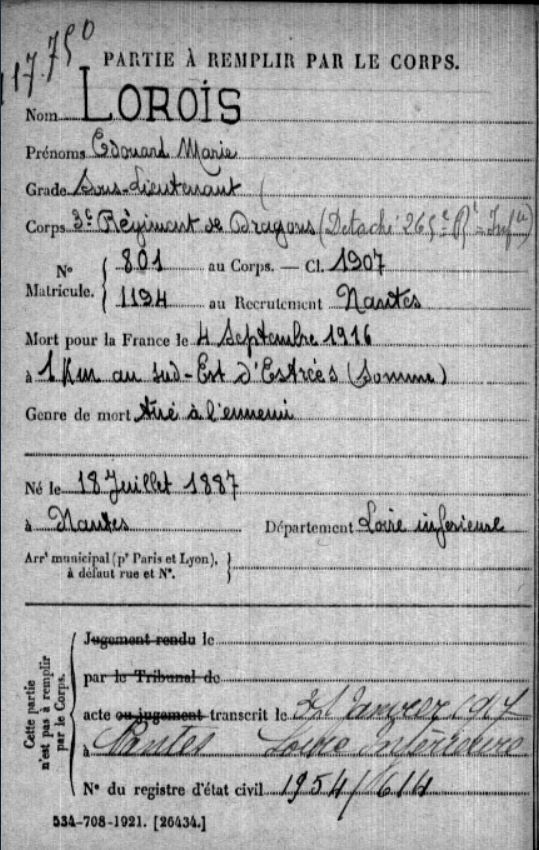 117.750
PARTIE À REMPLIR PAR LE CORPS.
Nom LOROIS
Prénoms Edouard Marie
Grade Sous-Lieutenant (
Corps 3e Régiment de Dragons (Détaché 265e Rt Infie)
No Matricule. { 801 au Corps. — Cl. 1907
1194 au Recrutement Nantes
Mort pour la France le 4 Septembre 1916
à 1 Km au Sud-Est d'Estrées (Somme)
Genre de mort tué à l'ennemi
Né le 18 Juillet 1887
à Nantes Département Loire inferieure
Arrt municipal (pr Paris et Lyon), }
à défaut rue et No.
Cette partie n'est pas à remplir par le Corps.
Jugement rendu le
par le Tribunal de
acte ou jugement transcrit le 31 Janvier 1917
à Nantes Loire Inférieure
No du registre d'état civil 1954/614
534-708-1921. [26434.]